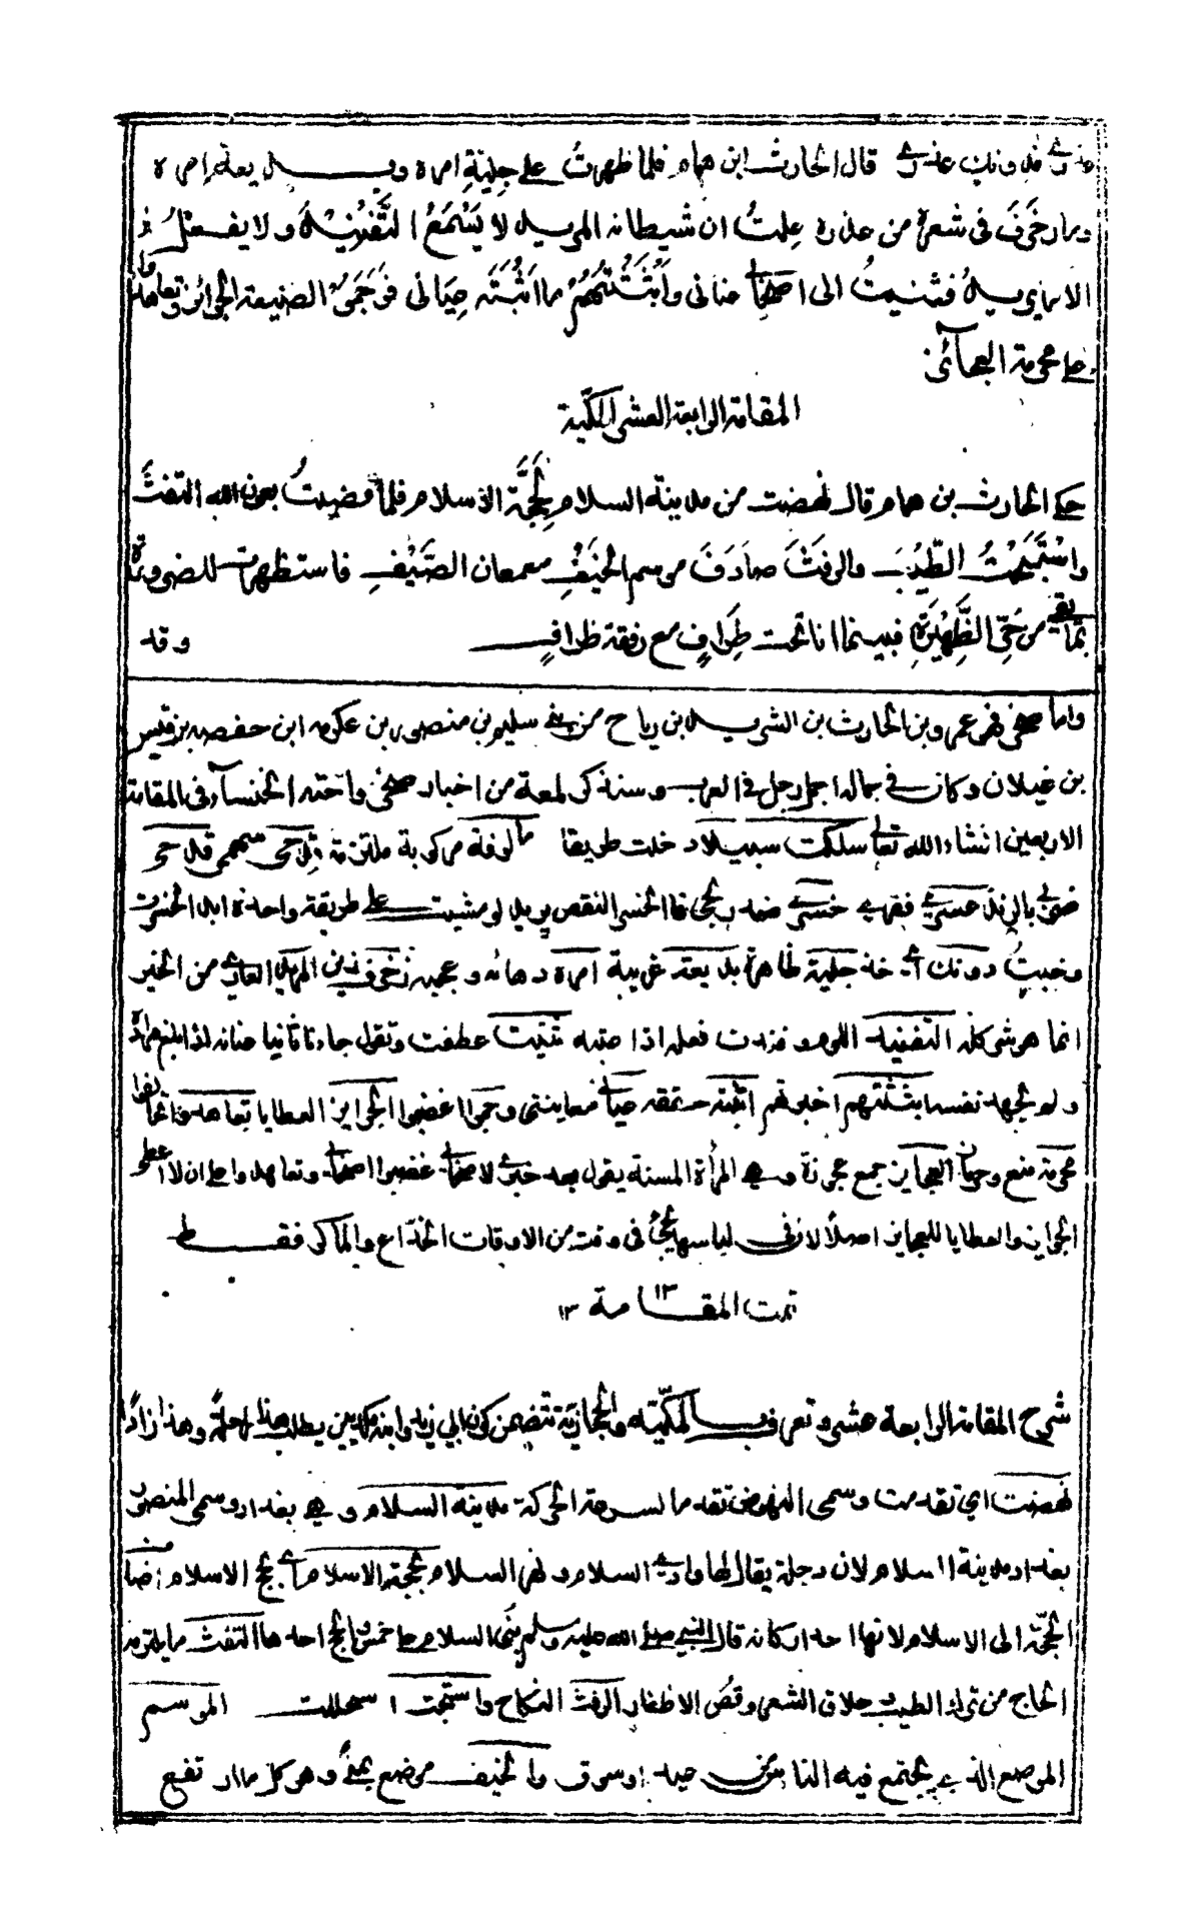 عذري فدونك عذري قال الحارث ابن همام فلما ظهرتُ على جِليّةِ امره وبديعة إمره
وما زخرَفَ في شعره من عذره علمتُ ان شيطانه المريد لا يَسْمَعُ التَّفْنِيْدَ ولا يفعلُ
الا ما يريد فثنيتُ الى اصحابي عناني وابْثَثْتُهُمْ ما اَثْبَتَه عِيَاني فوَجَمُوْا لضيعة الجوائز وتعاهدوا
على محرمة العجائز
المقامة الرابعة العشر المكّية
حكى الحارث بن همام قال نهضت من مدينة السلام لِحَجَّة الاسلام فلما قضيتُ بعون الله التفثَ
واسْتَبَحْتُ الطّيْبَ والرفثَ صادَفَ موسم الخَيْفِ معمعان الصَّيْفِ فاستظهرت للضرورة
بما يقي من حَرِّ الظَّهِيْرَةِ فبينما انا تحت طِرافٍ مع رفقة ظرافٍ وقد
واما صخر فهو عمرو بن الحارث بن الشريد بن رياح من بني سليم بن منصور بن عكرمه ابن حفصه بن قيس
بن غيلان وكان في جماله اجمل رجل في العرب وسنذكر لمعة من اخبار صخر واخته الخنساء في المقامة
الاربعين انشاء الله تعالى سلكت سبيلا دخلت طريقا مألوفة مركوبة ملتزمة
بالرند عسري فقري خسري ضد ربحى فالخسر النقص يريد لو مشيت على طريقة واحدة ابدا لخسرت
وخبتُ دونك اي خذ جلية ظاهرة بديعة غريبة امره دهائه وعجبه زخرف زين المريد العادي من الخير
انما هو شر كله التفنيد اللوم وفندت فعله اذا عتبه ثنيت عطفت وتقول جاءنا ثانيا عنانه اذا بلغ مراده
ولم يجهد نفسه ابثثتهم اخبرتهم اثبته حققه عياني معاينتي وجموا اغضبوا الجوايز العطايا تعاهدوا تحالفوا
محرمة منع وحرمان العجايز جمع عجوزة وهي المرأة المسنة يقول بعد خبري لاصحابي غضبوا اصحابي وتعاهدوا على ان لا اعطى
الجوايز والعطايا للعجايز اصلا لان في لباسها يجئ في وقت من الاوقات الخدّاع والماكر فقط
تمت المقامة ١٣ ١٣
شرح المقامة الرابعة عشر وتعرف بالمكّية والحجازيّة تتضمن كون ابي زيد وابنه مكديين يطلب هذا راحلةً وهذا زادًا
نهضت اي تقدمت وسمى النهوض تقدما لسرعة الحركة مدينة السلام وهي بغداد وسمى المنصور
بغداد مدينة السلام لان دجلة يقال لها وادي السلام ونهر السلام بحجة الاسلام اي بحج الاسلام اضاف
الحجّة الى الاسلام لانها احد اركانه قال النبي صلى الله عليه وسلم بُني الاسلام على خمس والحج احدها التفث ما يلتزمه
الحاج من ترك الطيب وحلاق الشعر وقصّ الاظفار الرفث النكاح واستبحت استحللت الموسم
الموضع الذي يجتمع فيه الناس من عيد او سوق والخيف موضع بمنىً وهو كل ما ارتفع